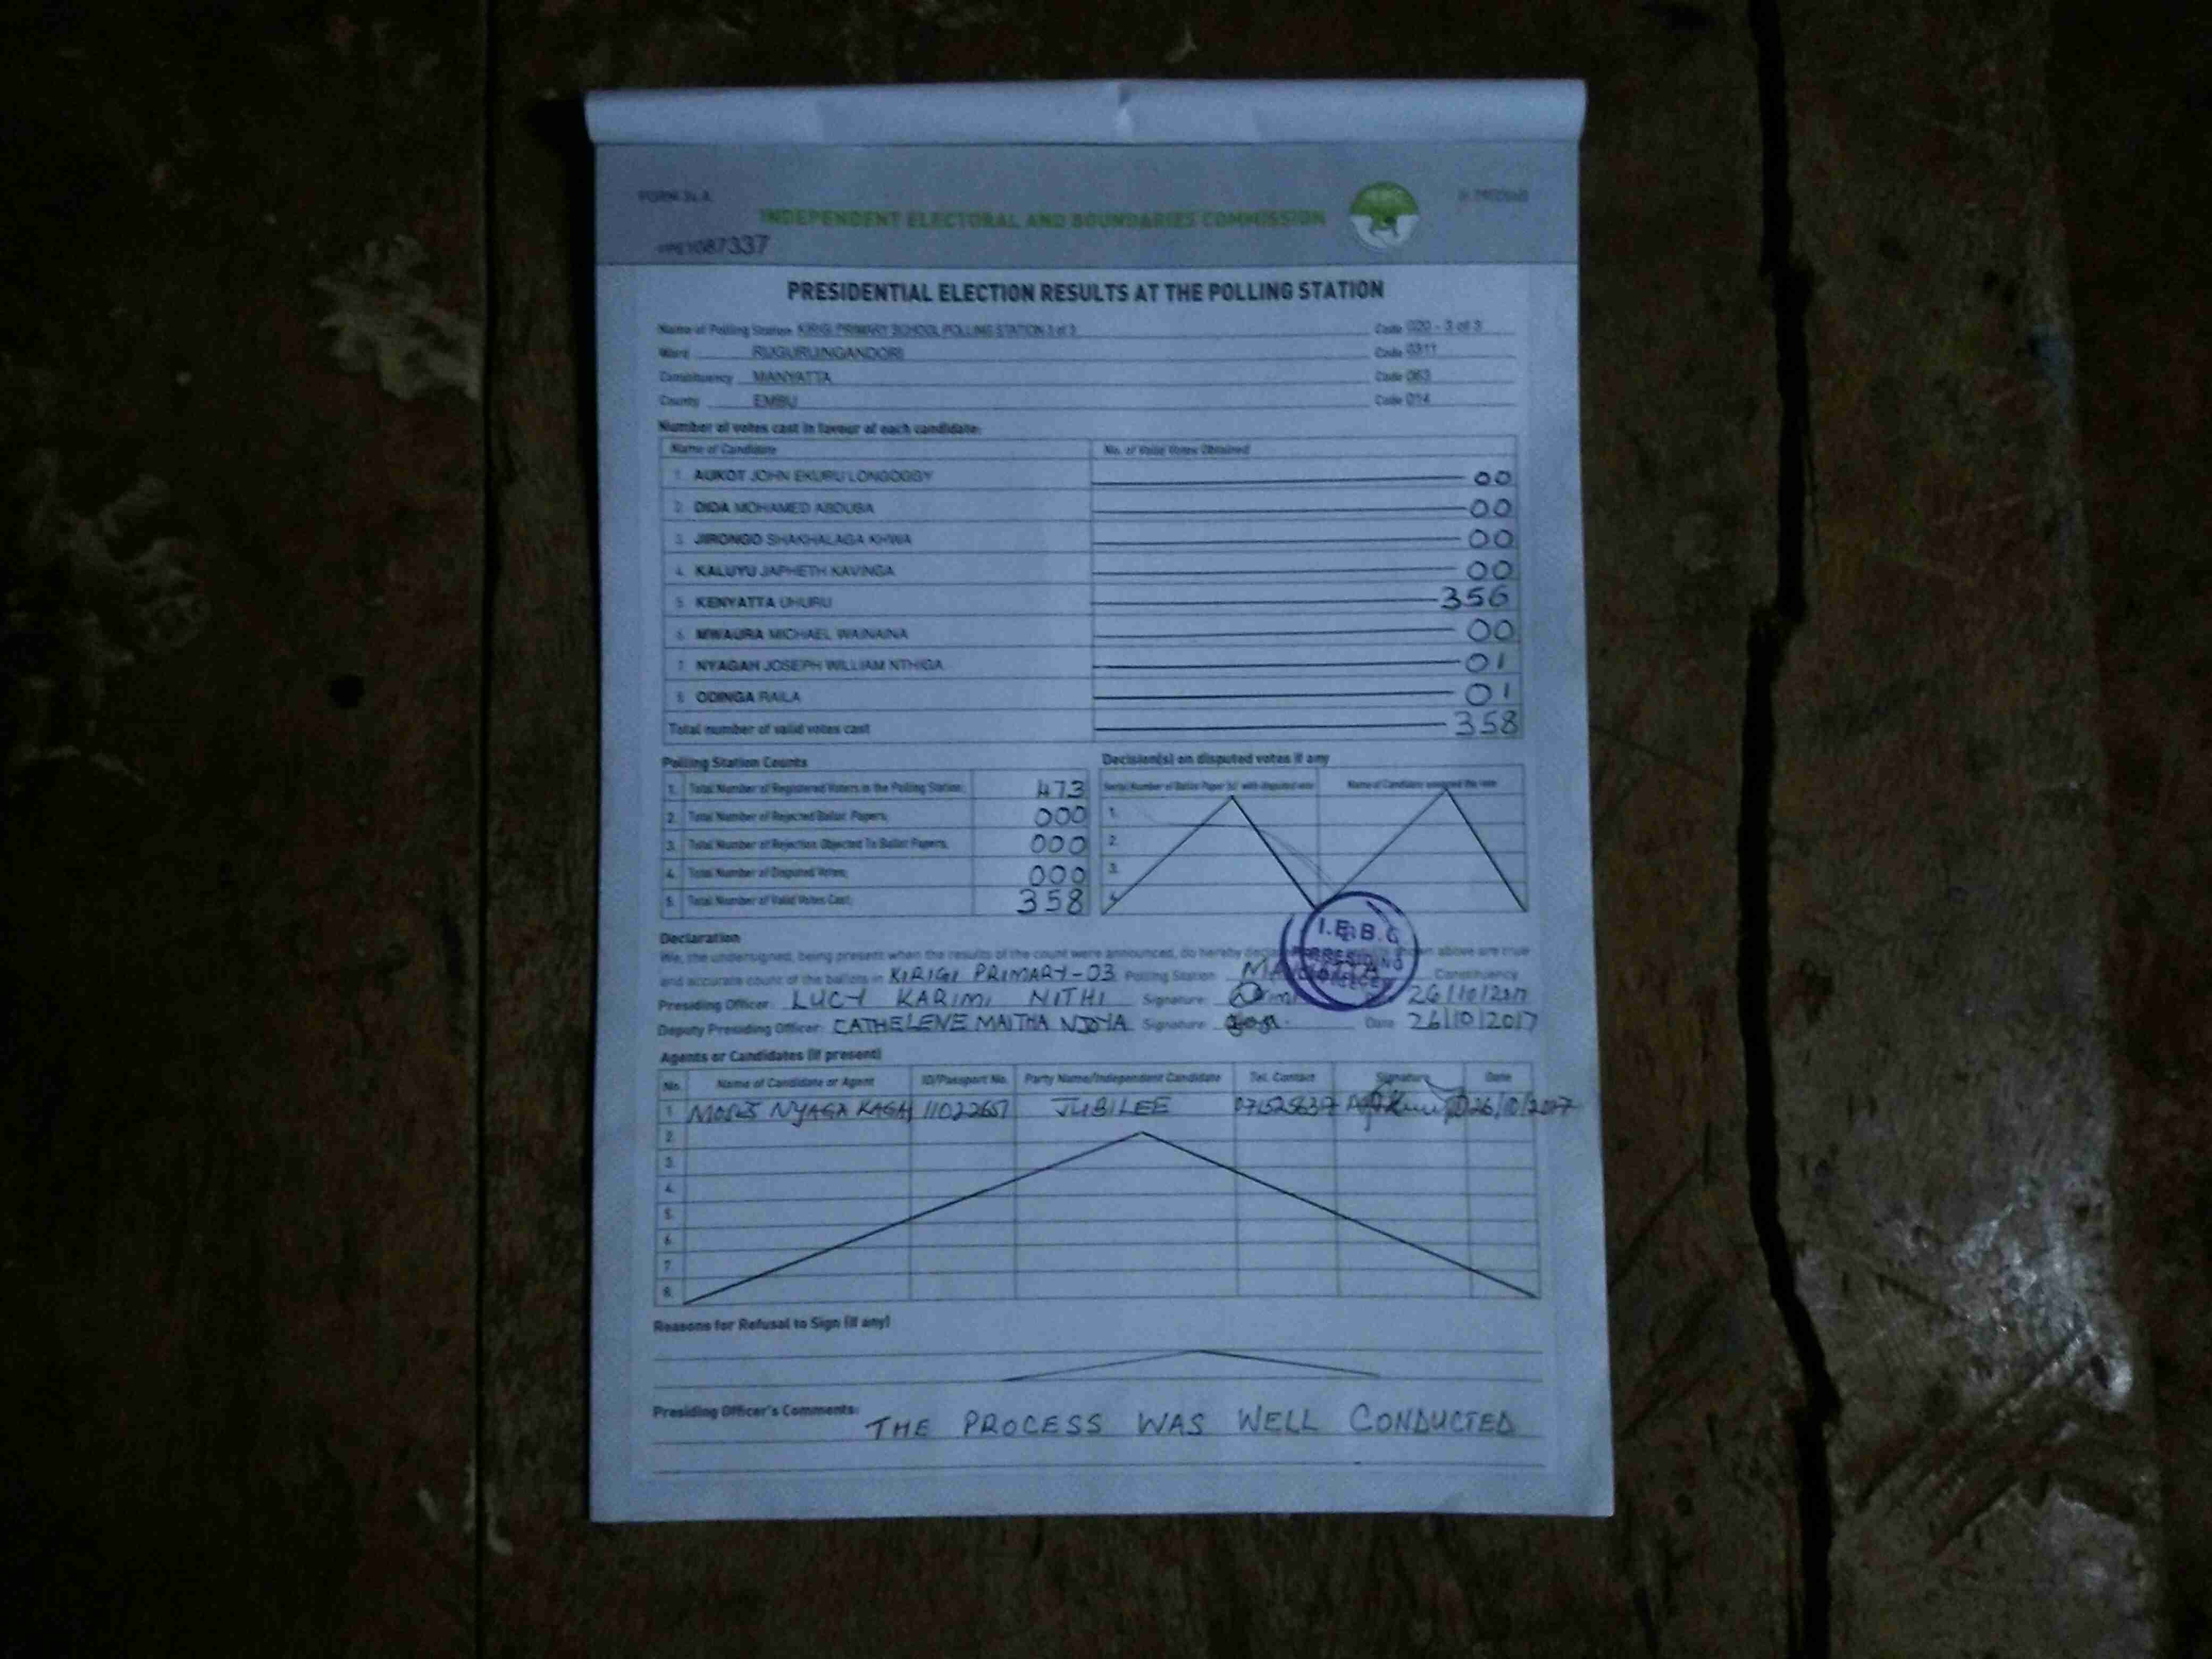 FORM 34 A
INDEPENDENT ELECTORAL AND BOUNDARIES COMMISSION
1087337
PRESIDENTIAL ELECTION RESULTS AT THE POLLING STATION
Name of Polling Station KIRIGI PRIMARY SCHOOL POLLING STATION 3 of 3 Code 020 - 3 of 3
Ward RUGURU/NGANDORI Code 0311
Constituency MANYATTA Code 063
County EMBU Code 014
Number of votes cast in favour of each candidate:
Name of Candidate No. of Valid Votes Obtained
1. AUKOT JOHN EKURU LONGOGGY 00
2. DIDA MOHAMED ABDUBA 00
3. JIRONGO SHAKHALAGA KHWA 00
4. KALUYU JAPHETH KAVINGA 00
5. KENYATTA UHURU 356
6. MWAURA MICHAEL WAINAINA 00
7. NYAGAH JOSEPH WILLIAM NTHIGA 01
8. ODINGA RAILA 01
Total number of valid votes cast 358
Polling Station Counts
1. Total Number of Registered Voters in the Polling Station; 473
2. Total Number of Rejected Ballot Papers; 000
3. Total Number of Rejection Objected To Ballot Papers; 000
4. Total Number of Disputed Votes; 000
5. Total Number of Valid Votes Cast; 358
Decision(s) on disputed votes if any
Serial Number of Ballot Paper (s) with disputed vote Name of Candidate the vote
1.
2.
3.
4.
I.E.B.C
PRESIDING
OFFICER
Declaration
We, the undersigned, being present when the results of the count were announced, do hereby above are true
and accurate count of the ballots in KIRIGI PRIMARY-03 Polling Station MANYATTA Constituency
Presiding Officer: LUCY KARIMI NITHI Signature: 26/10/2017
Deputy Presiding Officer: CATHELENE MAITHA NJOYA Signature: Date: 26/10/2017
Agents or Candidates (if present)
No. Name of Candidate or Agent ID/Passport No. Party Name/Independent Candidate Tel. Contact Signature Date
1. NYAGA 11022651 JUBILEE 26/10/2017
2.
3.
4.
5.
6.
7.
8.
Reasons for Refusal to Sign (if any)
Presiding Officer's Comments: THE PROCESS WAS WELL CONDUCTED